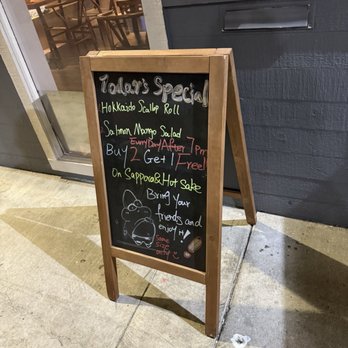 Today's Special
Hokkaido Scallop Roll
Salmon Mango Salad
Every Day After 7pm
Buy 2 Get 1 Free!
On Sapporo & Hot Sake
Bring your
friends and
enjoy it!
Same
Size
Only